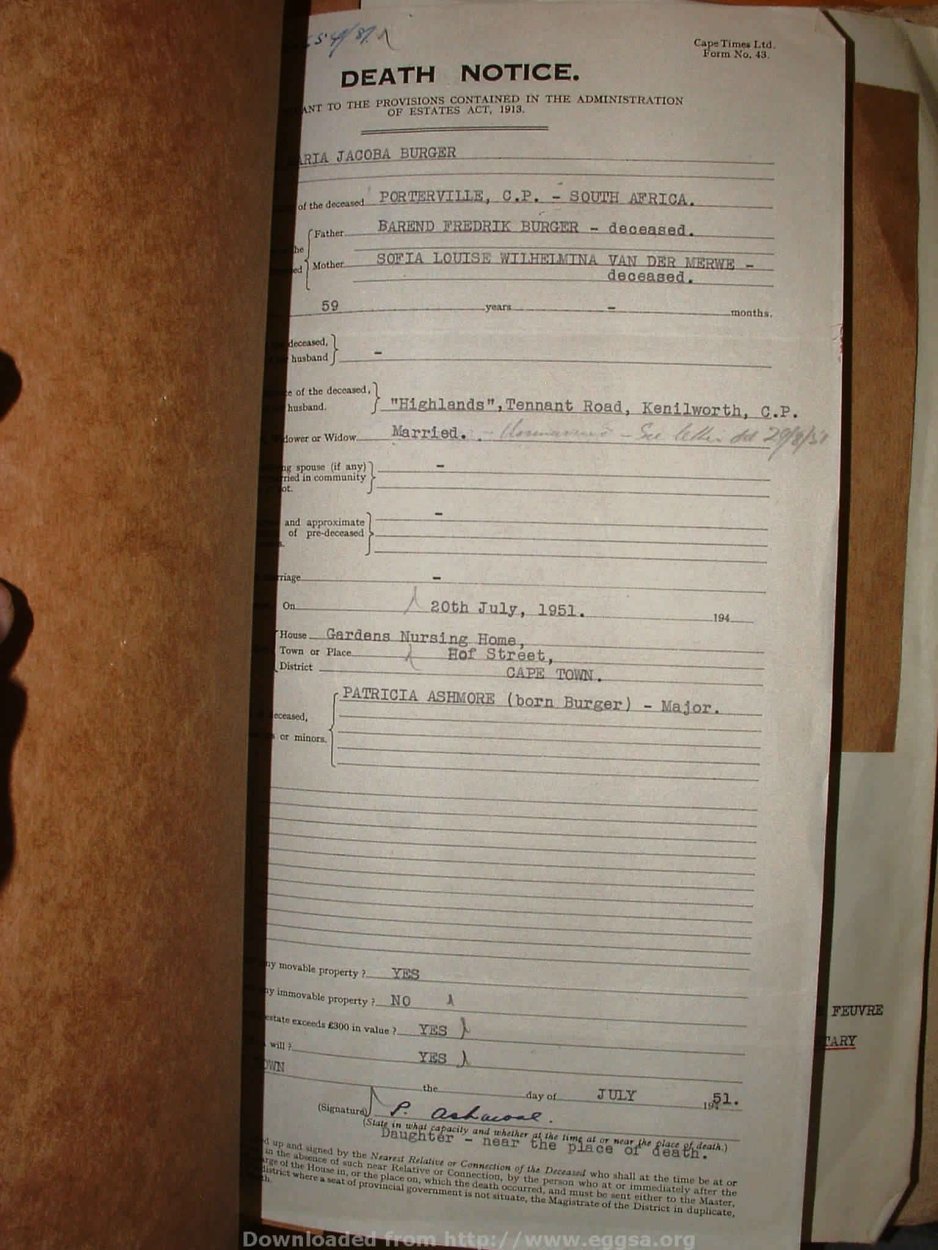 Cape Times Ltd.
Form No. 43.
DEATH NOTICE.
ANT TO THE PROVISIONS CONTAINED IN THE ADMINISTRATION
OF ESTATES ACT, 1913.
ARIA JACOBA BURGER
of the deceased PORTERVILLE, C.P. - SOUTH AFRICA.
Father BAREND FREDRIK BURGER - deceased.
he
ed Mother SOFIA LOUISE WILHELMINA VAN DER MERWE -
deceased.
59 years - months.
deceased,
husband -
e of the deceased,
husband. "Highlands", Tennant Road, Kenilworth, C.P.
dower or Widow Married. - See letter dd 29/8/51
ng spouse (if any) -
ried in community
ot.
-
and approximate
of pre-deceased
rriage -
On 20th July, 1951. 194
House Gardens Nursing Home,
Town or Place Hof Street,
District CAPE TOWN.
PATRICIA ASHMORE (born Burger) - Major.
eceased,
s or minors.
ny movable property ? YES
ny immovable property ? NO
estate exceeds £300 in value ? YES
will ? YES
OWN the day of JULY 1951.
(Signature) P. Ashmore.
(State in what capacity and whether at the time at or near the place of death.)
Daughter - near the place of death.
d up and signed by the Nearest Relative or Connection of the Deceased who shall at the time be at or
in the absence of such near Relative or Connection, by the person who at or immediately after the
rge of the House in, or the place on, which the death occurred, and must be sent either to the Master,
district where a seat of provincial government is not situate, the Magistrate of the District in duplicate,
th.
FEUVRE
TARY
Downloaded from http://www.eggsa.org